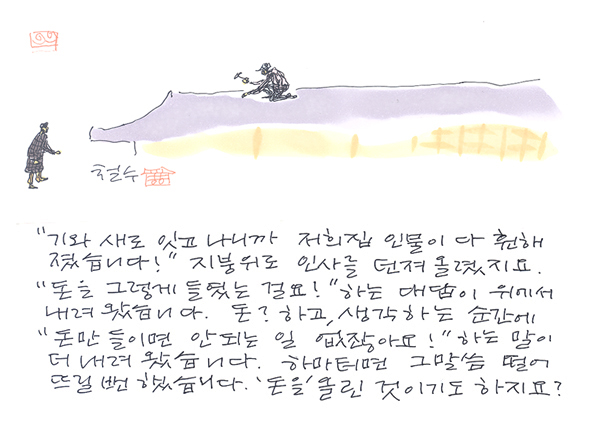 철수
"기와 새로 잇고 나니까 저희집 인물이 다 훤해
졌습니다!" 지붕위로 인사를 던져 올렸지요.
"돈을 그렇게 들였는 걸요!" 하는 대답이 위에서
내려 왔습니다. 돈? 하고, 생각하는 순간에
"돈만 들이면 안되는 일 없잖아요!" 하는 말이
더 내려 왔습니다. 하마터면 그말씀 떨어
뜨릴 뻔 했습니다. '돈을' 올린 것이기도 하지요?